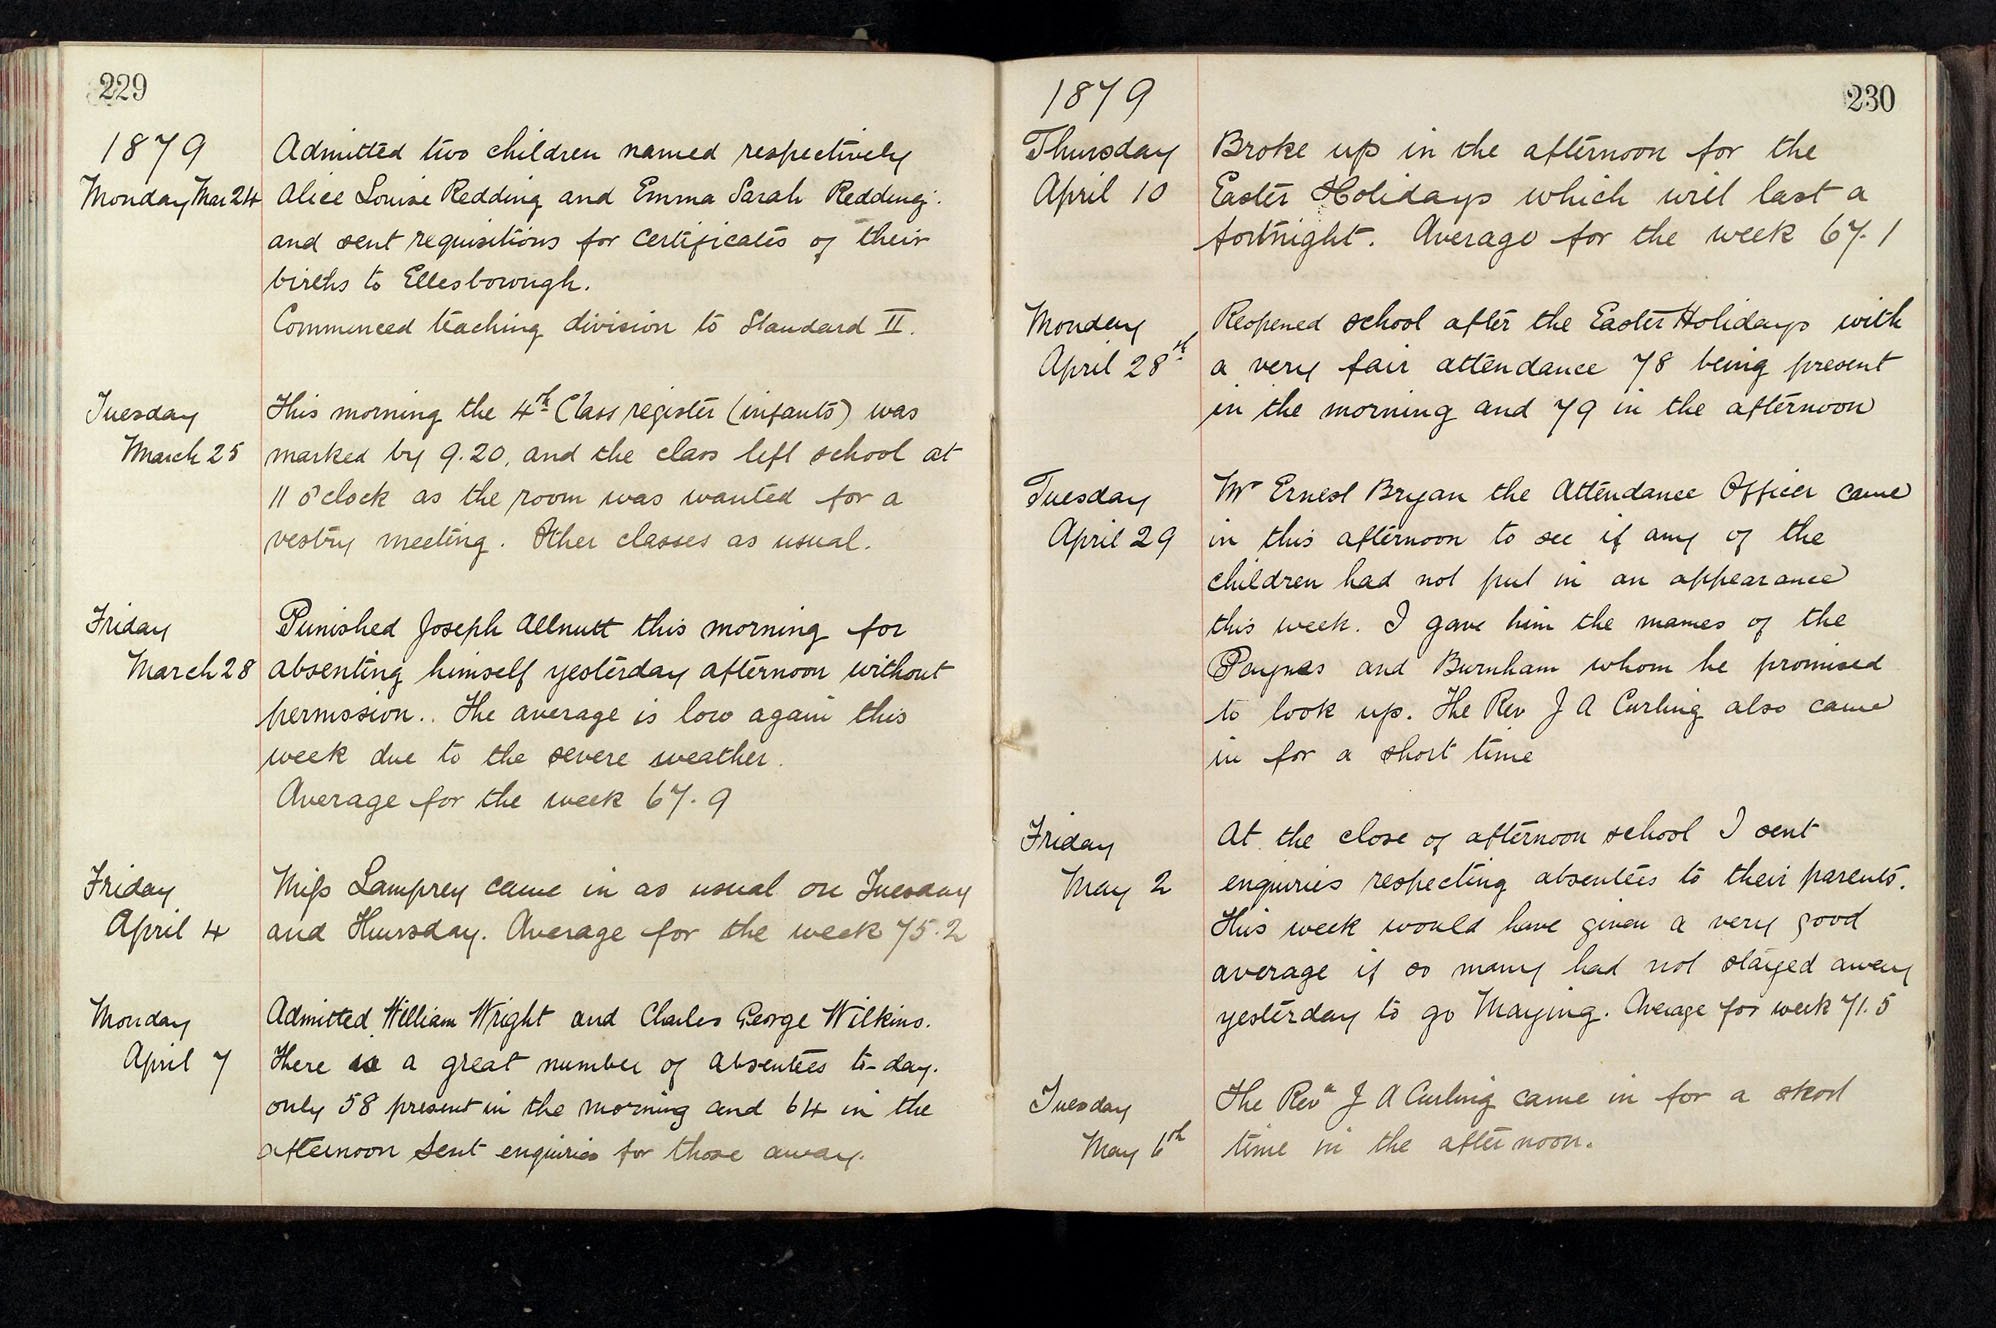 229
1879
Monday Mar 24 Admitted two children named respectively
Alice Louise Redding and Emma Sarah Redding.
and sent requisitions for certificates of their
births to Ellesborough.
Commenced teaching division to Standard II.
Tuesday This morning the 4th Class register (infants) was
March 25 marked by 9.20, and the class left school at
11 o'clock as the room was wanted for a
vestry meeting. Other classes as usual.
Friday Punished Joseph Allnutt this morning for
March 28 absenting himself yesterday afternoon without
permission.. The average is low again this
week due to the severe weather.
Average for the week 67.9
Friday Miss Lamprey came in as usual on Tuesday
April 4 and Thursday. Average for the week 75.2
Monday Admitted William Wright and Charles George Wilkins.
April 7 There is a great number of absentees to-day.
only 58 present in the morning and 64 in the
afternoon Sent enquiries for those away.
1879 230
Thursday Broke up in the afternoon for the
April 10 Easter Holidays which will last a
fortnight. Average for the week 67.1
Monday Reopened school after the Easter Holidays with
April 28th a very fair attendance 78 being present
in the morning and 79 in the afternoon
Tuesday Mr Ernest Bryan the Attendance Officer came
April 29 in this afternoon to see if any of the
children had not put in an appearance
this week. I gave him the names of the
Paynes and Burnham whom he promised
to look up. The Rev J A Curling also came
in for a short time
Friday At the close of afternoon school I sent
May 2 enquiries respecting absentees to their parents.
This week would have given a very good
average if so many had not stayed away
yesterday to go Maying. Average for week 71.5
Tuesday The Revd J A Curling came in for a short
May 6th time in the afternoon.